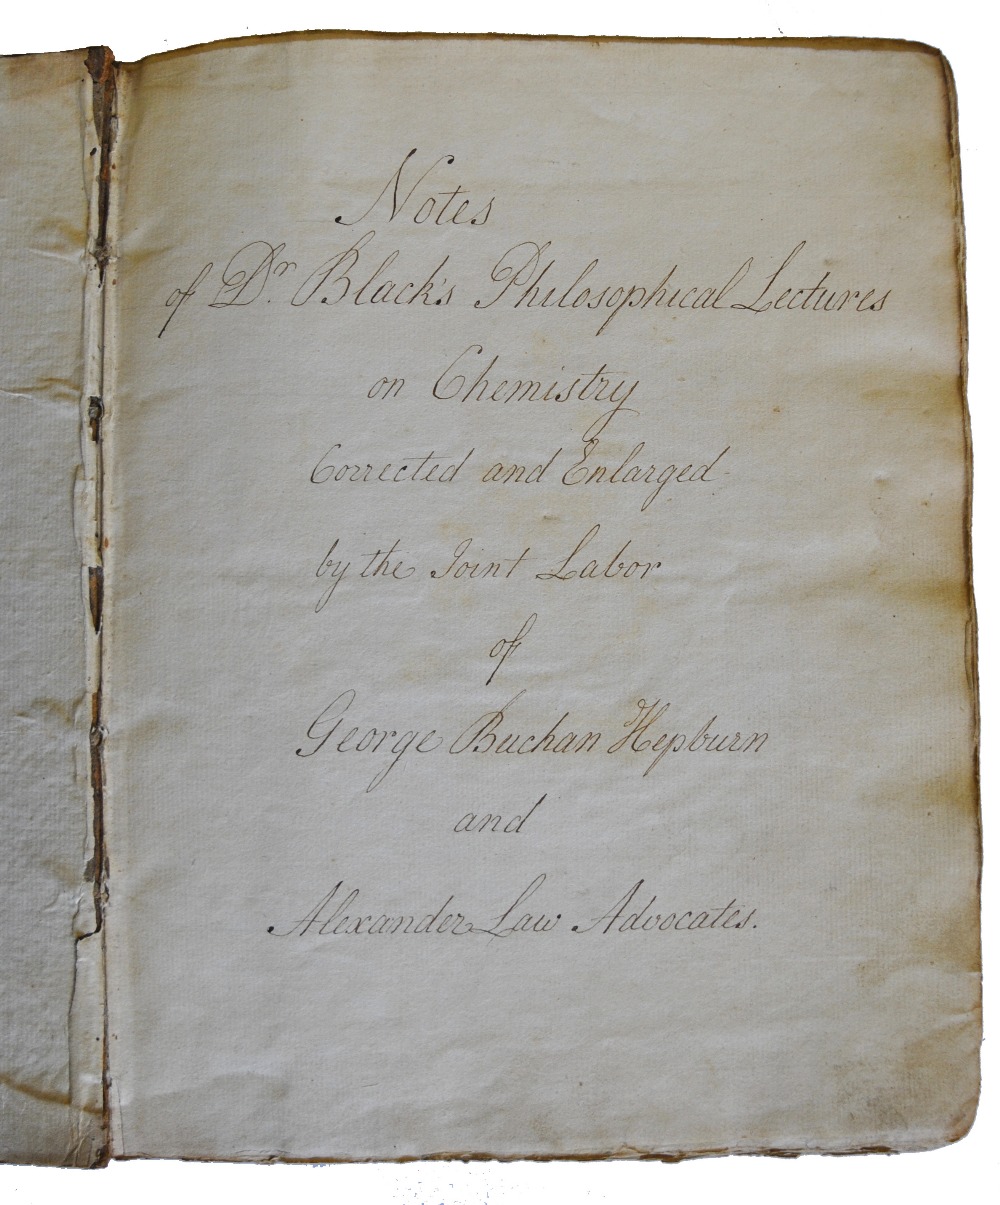 Notes
of Dr. Black's Philosophical Lectures
on Chemistry
Corrected and Enlarged
by the Joint Labor
of
George Buchan Hepburn
and
Alexander Law Advocates.